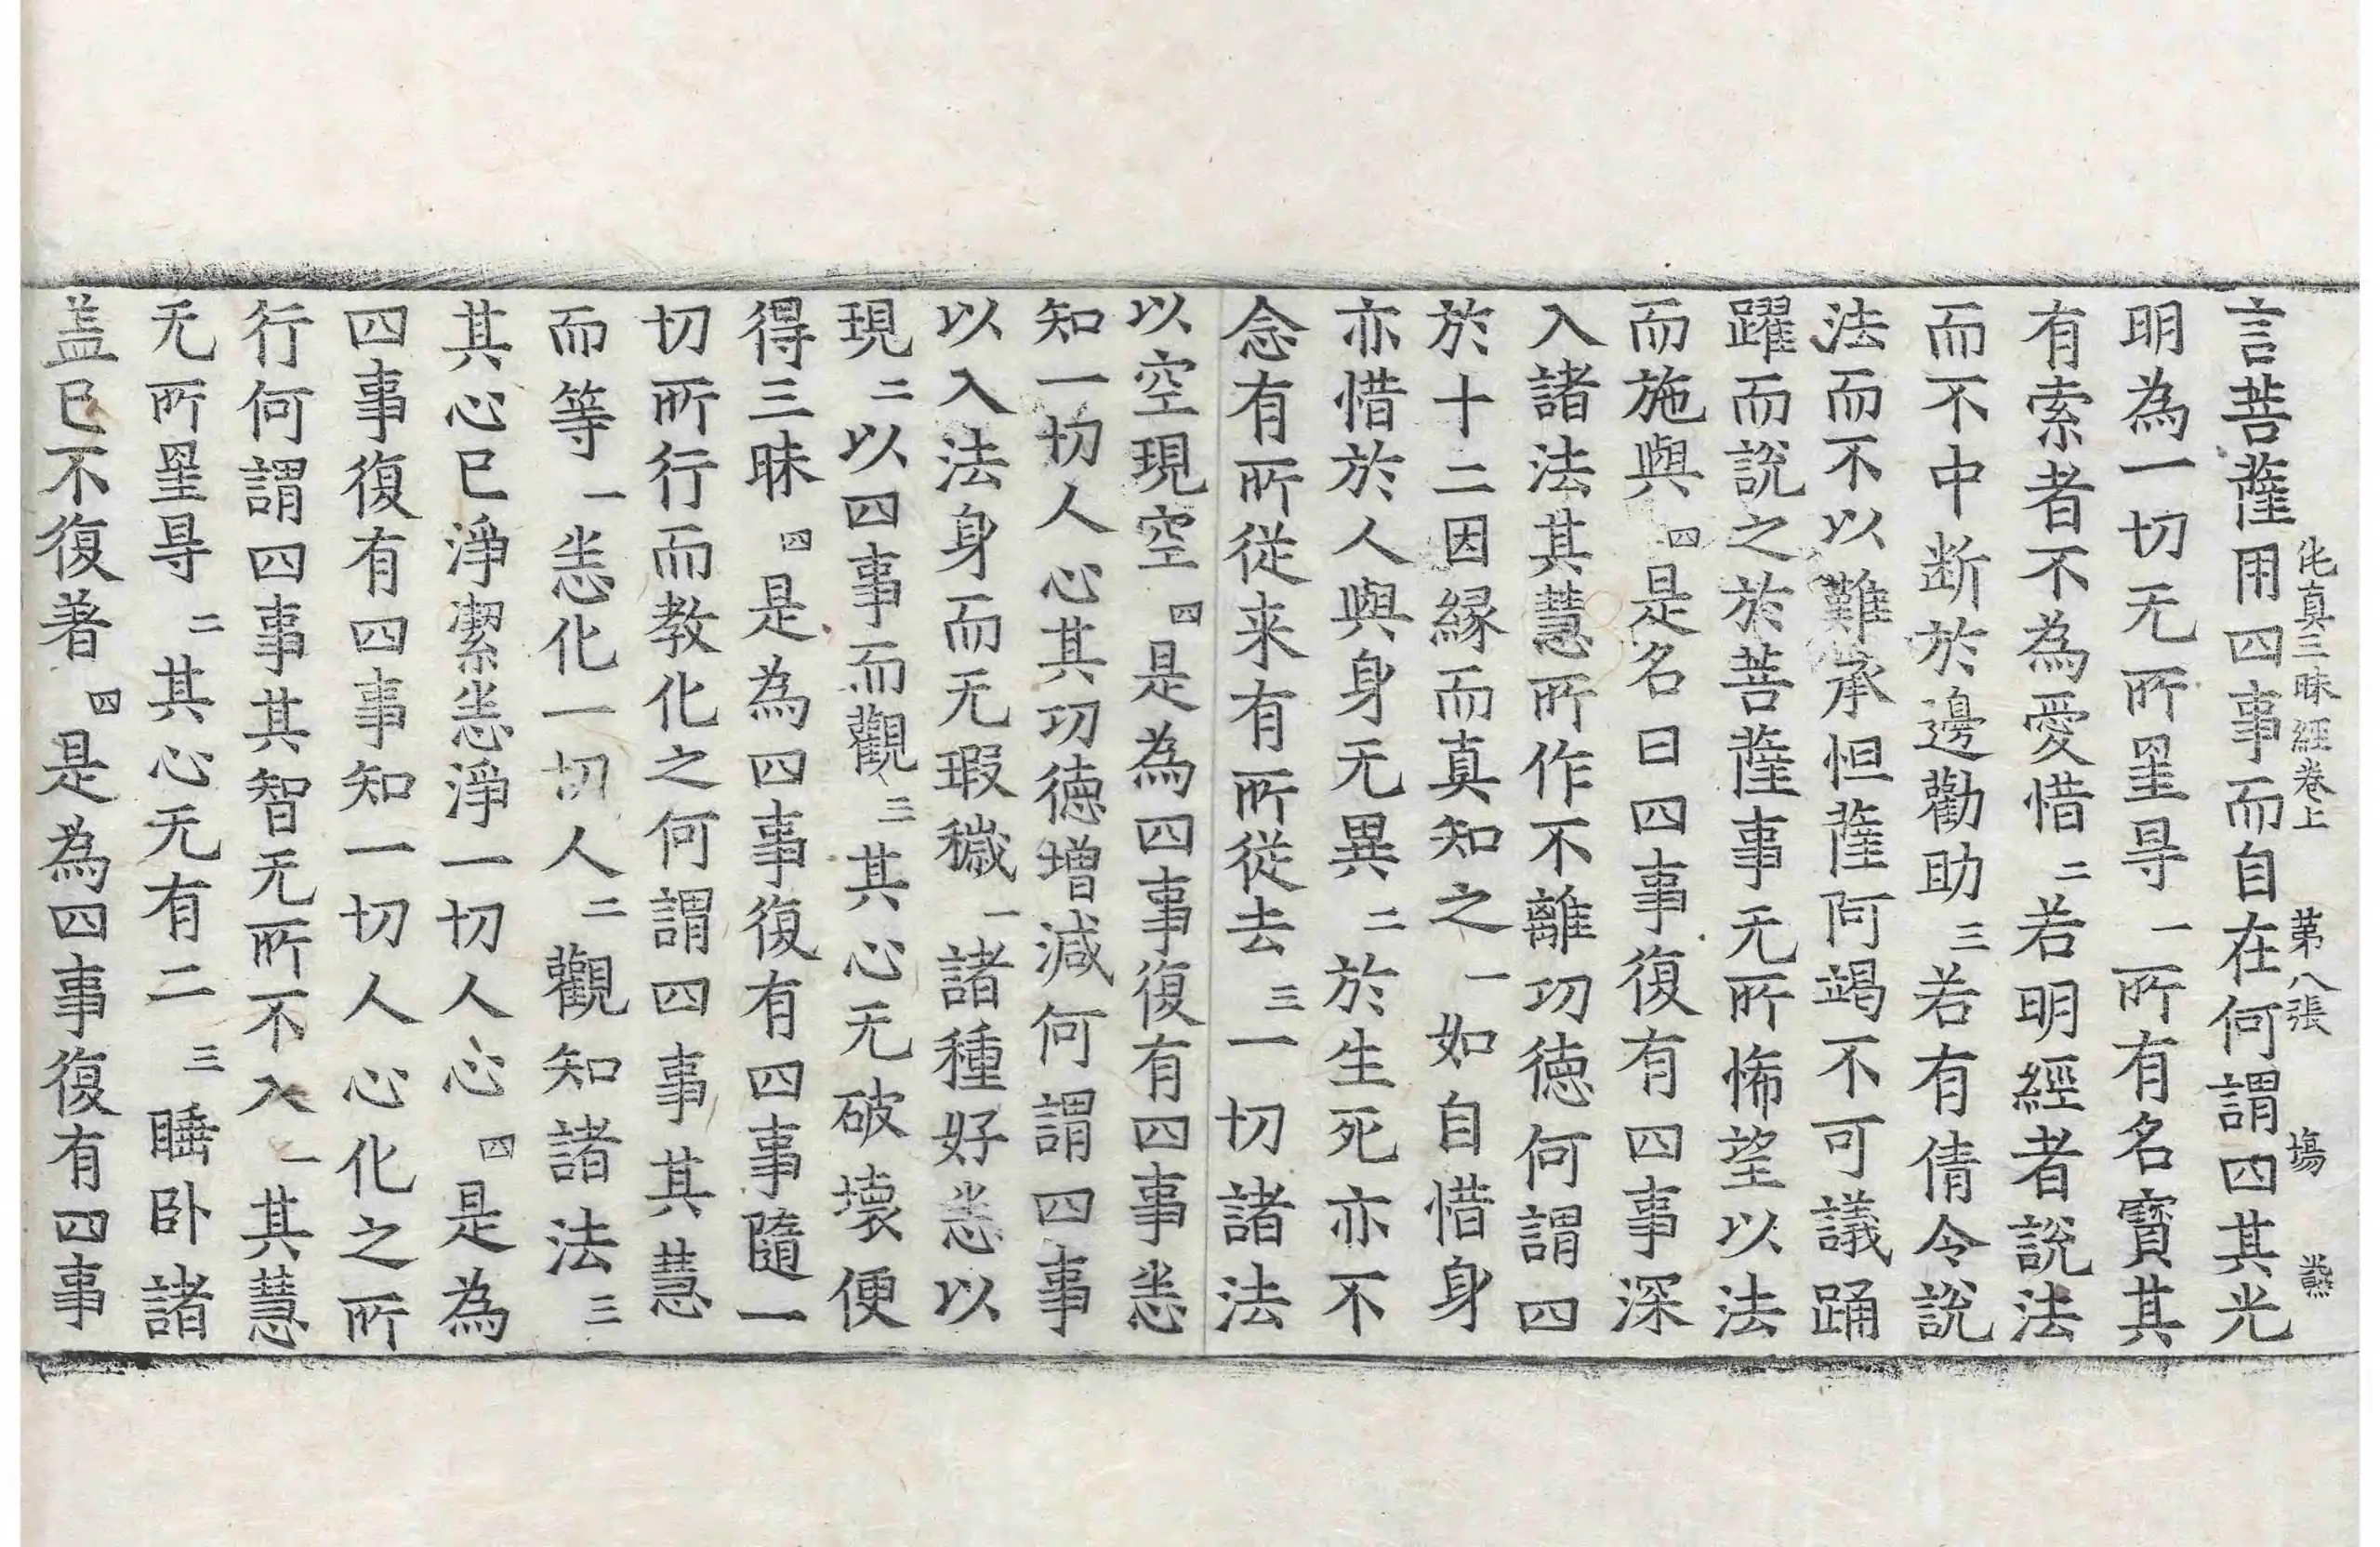 言菩薩用四事而自在何謂四其光
明為一切无所罣㝵一所有名寶其
有索者不為愛惜二若明經者說法
而不中断於邊勸助三若有倩令說
法而不以難承怛薩阿竭不可議踊
躍而說之於菩薩事无所悕望以法
而施與四是名曰四事復有四事深
入諸法其慧所作不離功德何謂四
於十二因緣而真知之一如自惜身
亦惜於人與身无異二於生死亦不
念有所從来有所從去三一切諸法
以空現空四是為四事復有四事悉
知一切人心其功德增減何謂四事
以入法身而无瑕穢一諸種好悉以
現二以四事而觀三其心无破壞便
得三昧四是為四事復有四事隨一
切所行而教化之何謂四事其慧
而等一悉化一切人二觀知諸法三
其心已淨潔悉淨一切人心四是為
四事復有四事知一切人心化之所
行何謂四事其智无所不入一其慧
无所罣㝵二其心无有二三睡卧諸
盖已不復著四是為四事復有四事
伅真三昧經卷上 第八張 場